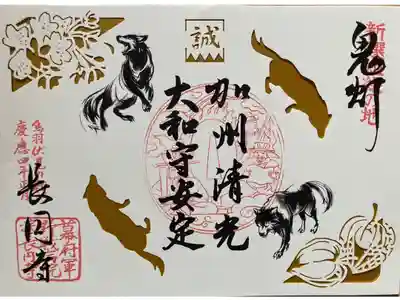 誠
新選
の地
鬼灯
加州清光
大和守安定
鳥羽伏見
慶應四年
長円寺
幕府軍